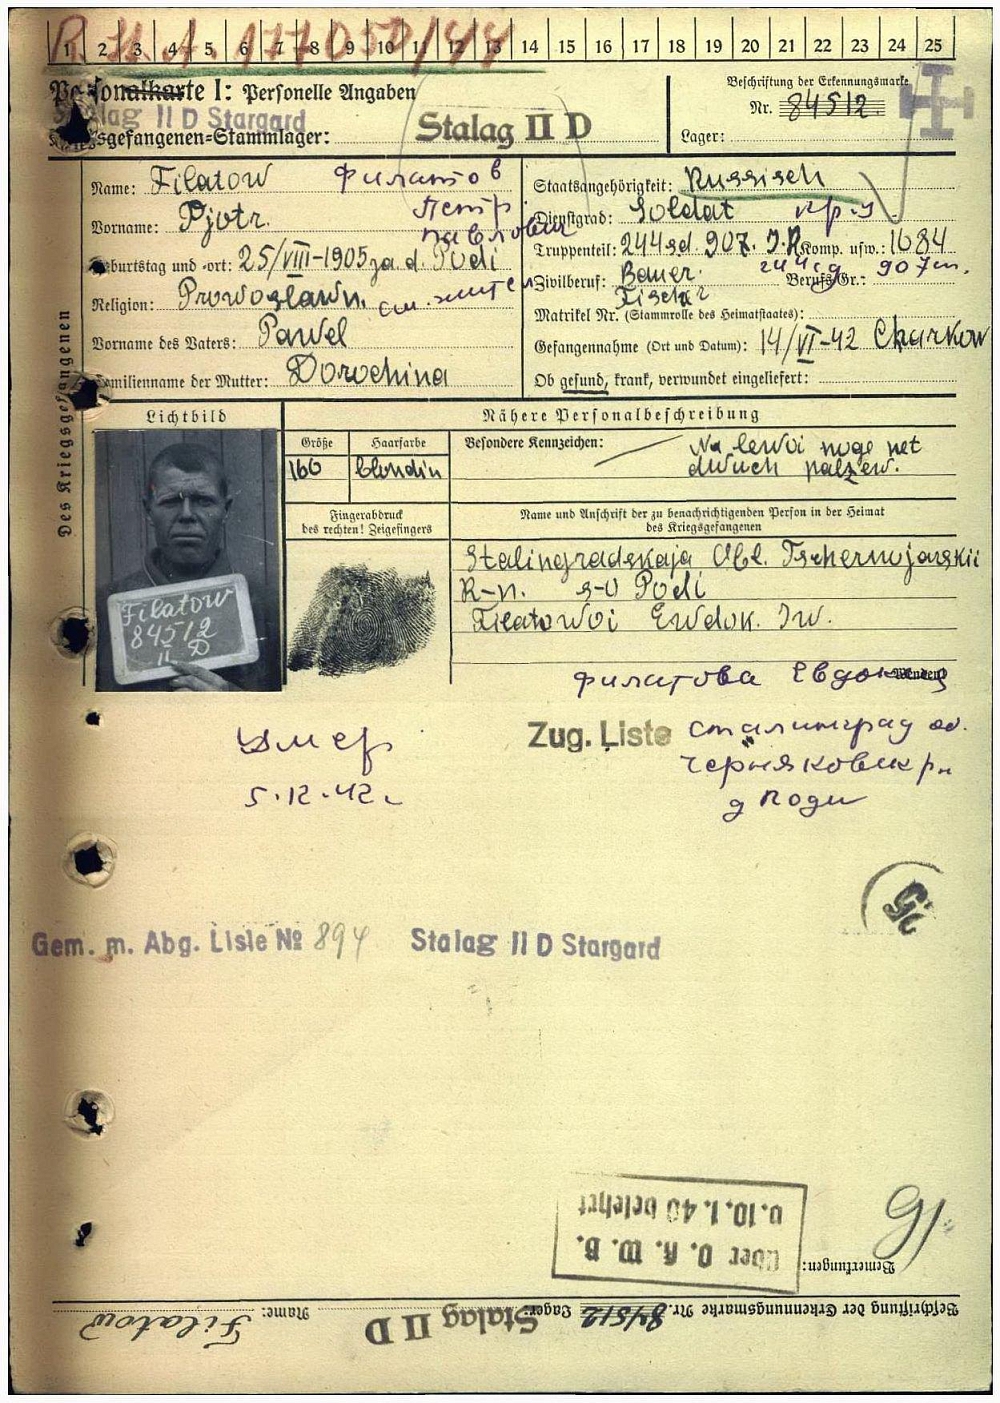 R.H.A. 177050/44
1 2 3 4 5 6 7 8 9 10 11 12 13 14 15 16 17 18 19 20 21 22 23 24 25
Personalkarte I: Personelle Angaben
Stalag II D Stargard
Kriegsgefangenen=Stammlager: Stalag II D
Beschriftung der Erkennungsmarke
Nr. 84512
Lager:
Des Kriegsgefangenen
Name: Filatow Филатов
Vorname: Pjotr. Петр
Павлович
Geburtstag und -ort: 25/VIII-1905 ja. d. Podi
Religion: Prowoslawn.
Vorname des Vaters: Pawel
Familienname der Mutter: Dorochina
Staatsangehörigkeit: Russisch
Dienstgrad: Soldat кр-ц
Truppenteil: 244 sd. 907. I.R. Komp. usw.: 1684
Zivilberuf: Bauer. 244 сд Berufs-Gr.: 907 сп.
Matrikel Nr. (Stammrolle des Heimatstaates):
Gefangennahme (Ort und Datum): 14/VI-42 Charkow
Ob gesund, krank, verwundet eingeliefert:
Lichtbild
Filatow
84512
II D
Nähere Personalbeschreibung
Größe Haarfarbe Besondere Kennzeichen: Na lewoi noge net
160 blondin dwuch palzew.
Fingerabdruck
des rechten! Zeigefingers
Name und Anschrift der zu benachrichtigenden Person in der Heimat
des Kriegsgefangenen
Stalingradskaja Obl. Tschernojarskii
R-n. s-o Podi
Filatowoi Ewdok. Iw.
Wenden!
Филатова Евдокия
Умер
5.12.42 г
Zug. Liste
Сталинград об.
Черняковик рн
д Поди
25
Gem. m. Abg. Liste № 894 Stalag II D Stargard
Bemerkungen:
Über O. K. W. B.
v. 10. 1. 40 belehrt
Beschriftung der Erkennungsmarke Nr. 84512 Lager: Stalag II D Name: Filatow